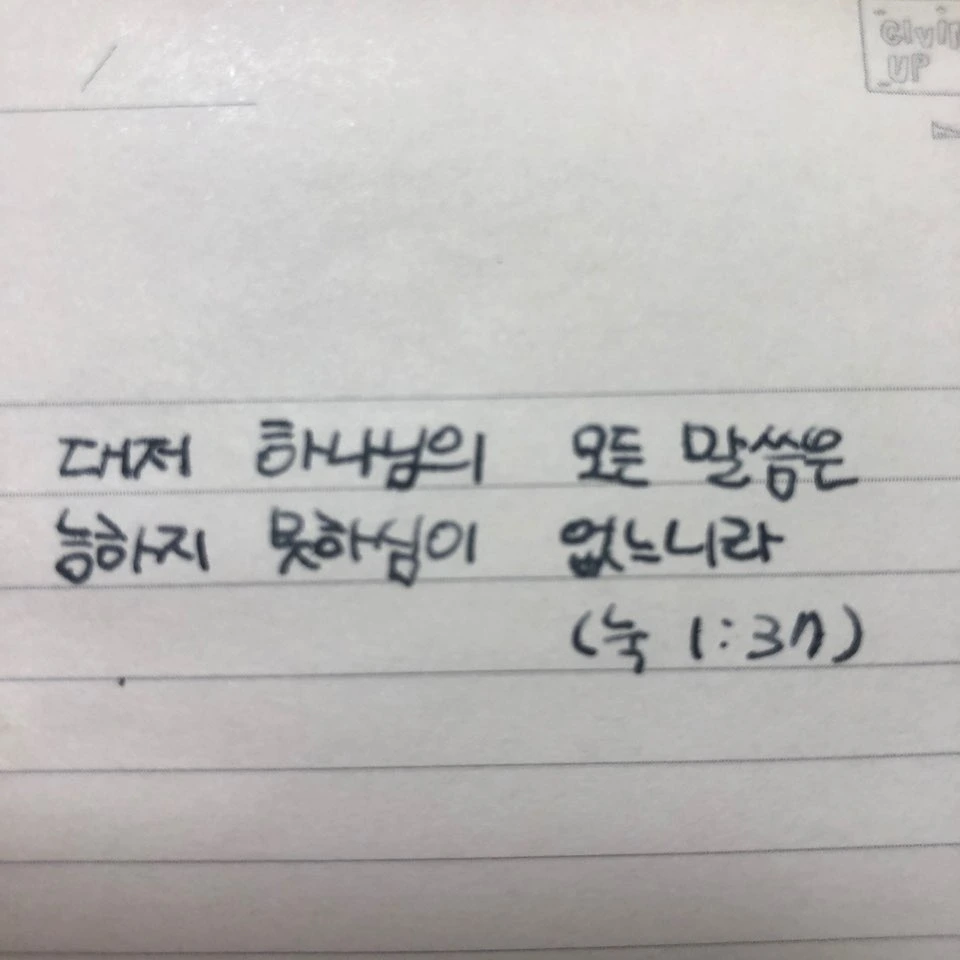 GIVIT
UP
대저 하나님의 모든 말씀은
능하지 못하심이 없느니라
(눅 1:37)